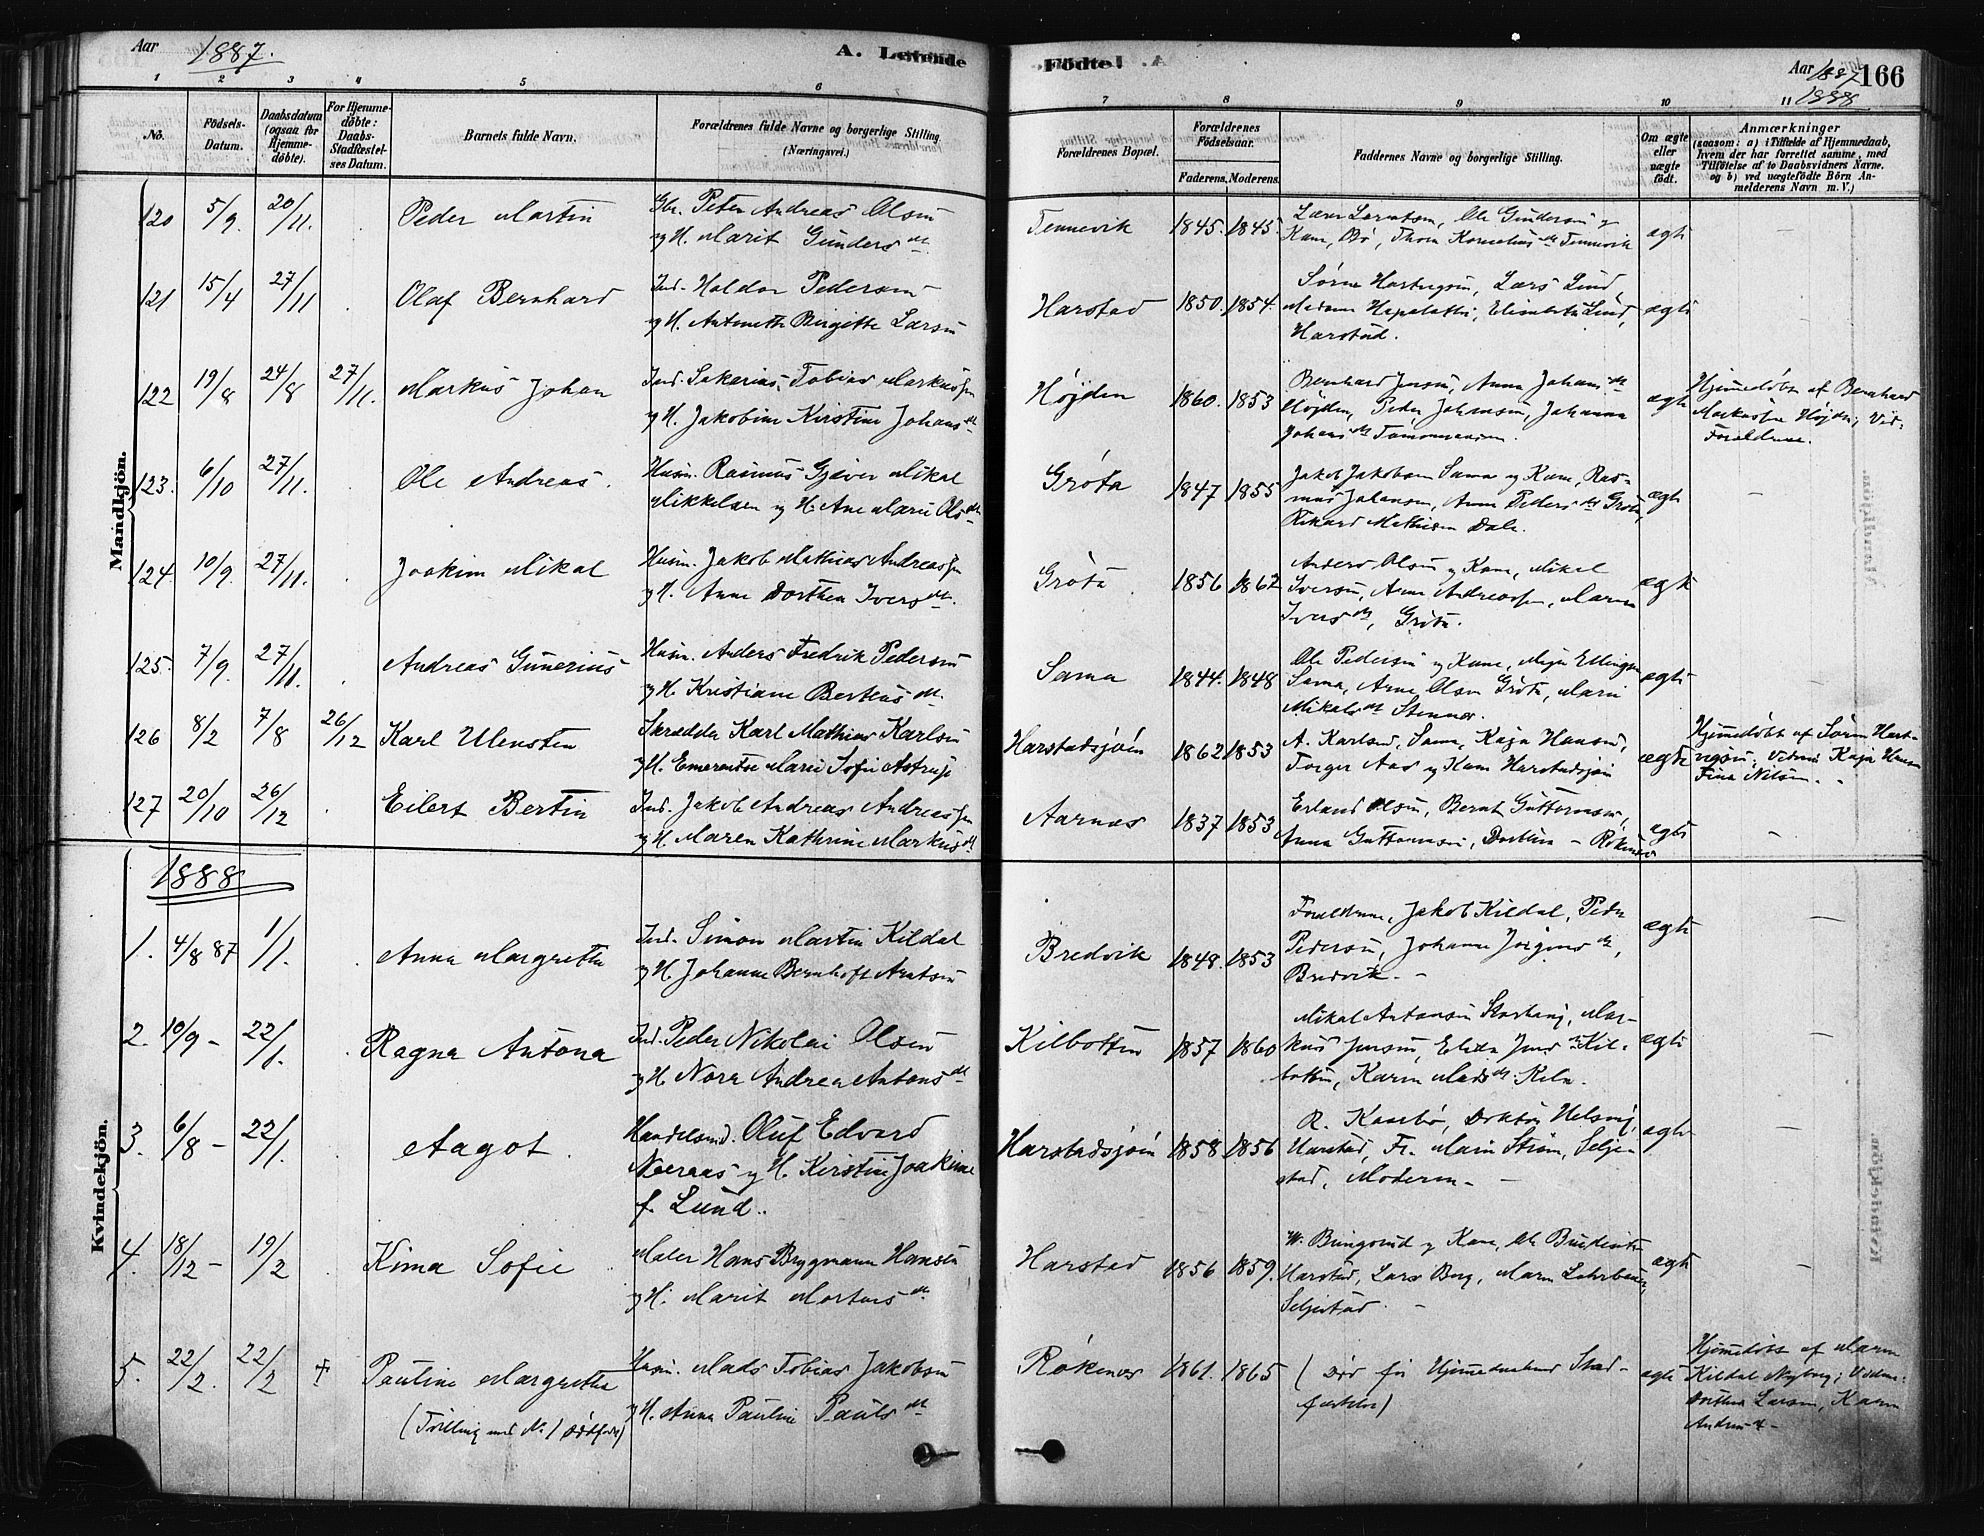 Aar 1887.
A. Levende
Födte.
Aar 1887
1888
166
1 2 3 4 5 6 7 8 9 10 11
No.
Födsels-Datum.
Daabsdatum (ogsaa for Hjemmedöbte).
For Hjemmedöbte: Daabs-Stadfæstelses Datum.
Barnets fulde Navn.
Forældrenes fulde Navne og borgerlige Stilling.
(Næringsvei.)
Forældrenes Bopæl.
Forældrenes Födselsaar.
Faderens. Moderens.
Faddernes Navne og borgerlige Stilling.
Om ægte eller uægte födt.
Anmærkninger
(saasom: a) i Tilfælde af Hjemmedaab, hvem der har forrettet samme, med Tilföielse af to Daabsvidners Navne. og b) ved uægtefödte Börn Anmelderens Navn m. V.)
Mandkjön.
120 5/9. 20/11. Peder Martin
Gbr. Peter Andreas Olsen
og H. Marit Gunders dt.
Tennevik 1845. 1845.
Ole Gundersen og
Kone, Bö, Thora Kornelius dt Tennevik
ægte
121 15/4 27/11 Olaf Bernhard
Ind. Haldor Pedersen
og H. Antonette Birgitte Larsen
Harstad 1850. 1854.
Lars Lund,
Madame Elisabeth Lund,
Harstad.
ægte
122 19/8 24/8 27/11. Markus Johan
Ind. Sakarias Tobias Markussen
og H. Jakobine Kirstine Johans dt
Höjden 1860. 1853
Bernhard Jensen, Anna Johans dt
Höjden, Peder Johansen, Johanna
Johans dt
ægte
Hjemmedöbt af Bernhard
Markussen Höjden; Vid:
Forældrene.
123. 6/10 27/11. Ole Andreas.
Husm. Rasmus Gjæver Mikal
Mikkelsen og H. Ane Marie Ols dt.
Gröta 1847 1855
Jakob Jakobsen Sama og Kone, Ras-
mus Johansen, Anna Peders dt Gröta,
Rikard Mathisen Dale.
ægte
124 10/9. 27/11. Joakim Mikal
Husm. Jakob Mathias Andreassen
og H. Anne Dorthea Ivers dt.
Gröta 1856 1862
Anders Olsen og Kone, Mikal
Iversen, Anne Andreassen, Maren
Ivers dt, Gröta.
ægte
125. 7/9. 27/11. Andreas Gunerius
Husm. Anders Fredrik Pedersen
og H. Kristiane Berteus dt.
Sama 1844. 1848
Ole Pedersen og Kone, Maja Ellingsen
Sama, Arne Olsen Gröta, Marie
Mikals dt
ægte
126 8/2 7/8 26/12 Karl Ulensten
Skrædder Karl Mathias Karlsen
og H. Emerentse Marie Sofie Astrup
Harstadsjöen 1862 1853
A. Karlsen, Sama, Kaja Hansen,
Torger Aas og Kone Harstadsjöen
ægte
Hjemmedöbt af Sören Hart-
vigsen; Vidner Kaja Hansen
Fina Nilsen.
127 20/10 26/12 Eilert Bertin
Ind. Jakob Andreas Andreassen
og H. Maren Kathrine Markus dt
Aarnes 1837 1853
Erland Olsen, Bernt Guttormsen,
Anna Guttormsen, Dorthea – Rökenes
ægte
1888
Kvindekjön.
1. 4/8 87 1/1. Anna Margrethe
Ind. Simon Martin Kildal
og H. Johanne Bernhoft Arntsen
Bredvik 1848. 1853
Forældrene, Jakob Kildal, Peder
Pedersen, Johanne Jörgens dt,
Bredvik.
ægte
2. 10/9 – 22/1. Ragna Antona
Ind. Peder Nikolai Olsen
og H. Nora Andrea Antons dt
Kilbotten 1857 1860
Mikal Antonsen, Mar-
kus Jensen, Elida Jens dt Kil-
botten, Karen Mads dt
ægte
3. 6/8 – 22/1. Aagot.
Handelsmd. Oluf Edvard
Normaas og H. Kirstine Joakime
f. Lund.
Harstadsjöen 1858. 1856
R. Kaarbö,
Harstad, Fr. Marie Ström, Selje-
stad, Moderen.
ægte
4. 18/12 – 19/2 Kima Sofie
Maler Hans Brygmann Hansen
og H. Marit Mortens dt
Harstad 1856 1859.
Kone,
Harstad, Lars Berg, Maren
Seljestad.
ægte
5. 22/2. 22/2 † Pauline Margrethe
(Tvilling med No 1 dödfödt)
Husm. Mads Tobias Jakobsen
og H. Anna Pauline Pauls dt
Rökenes 1861. 1865
(Död før Hjemmedaabens Stad-
fæstelse)
ægte
Hjemmedöbt af Maren
Kildal Nyborg; Vidne:
Dorthea Larsen, Karen